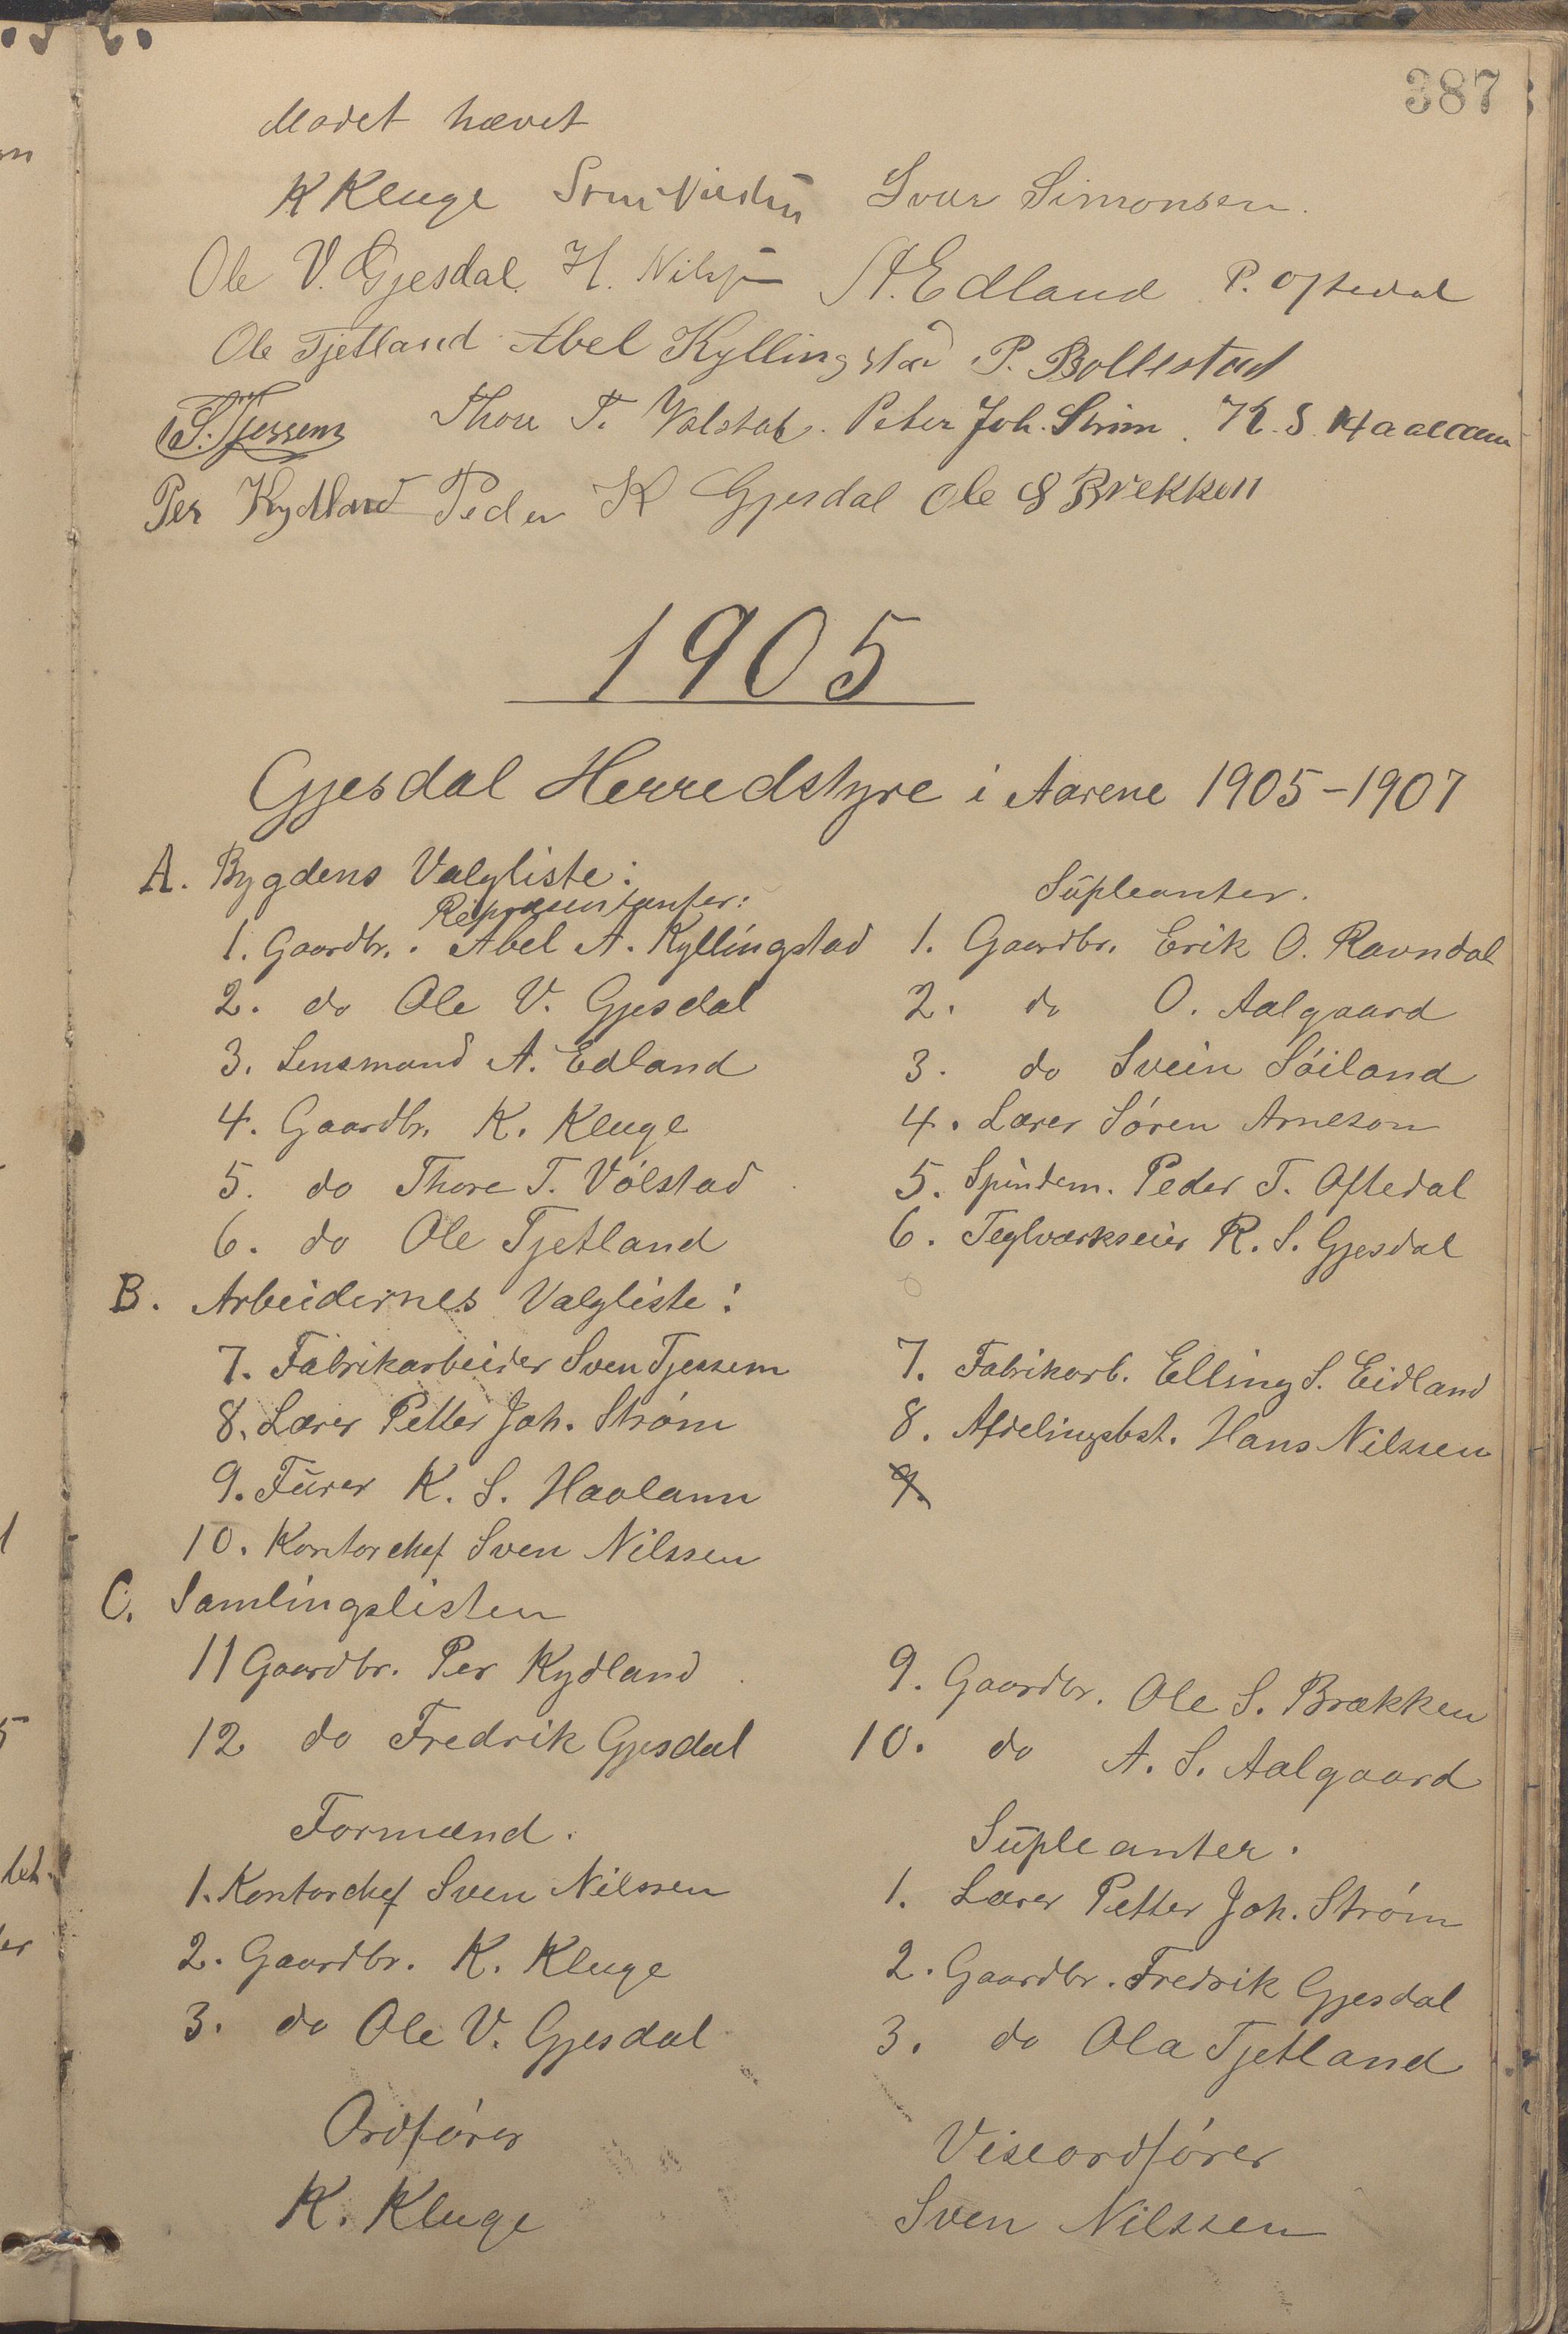 387
Mødet hævet
K Kluge Sven Nilssen Ivar Simonsen.
Ole V. Gjesdal. H. Nilssen A. Edland P. Oftedal
Ole Tjetland Abel Kyllingstad P. Bollestad
S. Tjessem Thore T. Vølstad. Peter Joh. Strøm. K. S. Haaland
Per Kydland Peder K Gjesdal Ole S Brekken
1905
Gjesdal Herredstyre i Aarene 1905-1907
A. Bygdens Valgliste:
Repræsentanter: Süpleanter.
1. Gaardbr. Abel A. Kyllingstad 1. Gaardbr. Erik O. Ravndal
2. do Ole V. Gjesdal 2. do O. Aalgaard
3. Lensmand A. Edland 3. do Svein Søiland
4. Gaardbr. K. Kluge 4. Lærer Søren Arneson
5. do Thore T. Vølstad 5. Spindem. Peder T. Oftedal
6. do Ole Tjetland 6. Teglværkseier R. S. Gjesdal
B. Arbeidernes Valgliste:
7. Fabrikarbeider Sven Tjessem 7. Fabrikarb. Elling S. Eidland
8. Lærer Petter Joh. Strøm 8. Afdelingsbst. Hans Nilssen
9. K. S. Haaland 9.
10. Kontorchef Sven Nilssen
C. Samlingslisten
11 Gaardbr. Per Kydland 9. Gaardbr. Ole S. Brækken
12 do Fredrik Gjesdal 10. do A. S. Aalgaard
Formænd. Süpleanter.
1. Kontorchef Sven Nilssen 1. Lærer Petter Joh. Strøm
2. Gaardbr. K. Kluge 2. Gaardbr. Fredrik Gjesdal
3. do Ole V. Gjesdal 3. do Ola Tjetland
Ordfører Viseordfører
K. Kluge Sven Nilssen